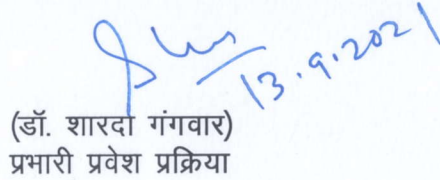 13.9.2021
(डॉ. शारदा गंगवार)
प्रभारी प्रवेश प्रक्रिया